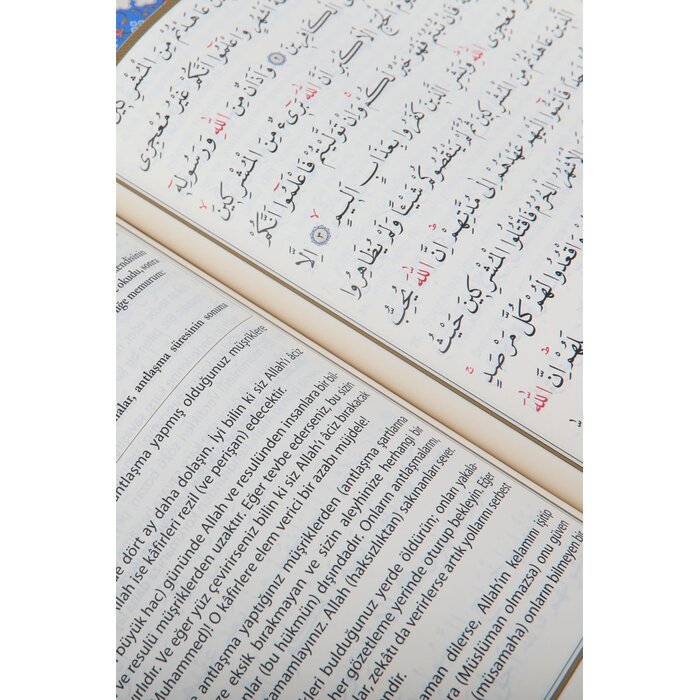 عَاهَدْتُمْ مِنَ الْمُشْرِكِينَ
وَاعْلَمُٓوا اَنَّكُمْ غَيْرُ مُعْجِزِي
الْكَافِرِينَ ٢ وَاَذَانٌ مِنَ اللّٰهِ وَرَسُولِهِٓ
الْحَجِّ الْاَكْبَرِ اَنَّ اللّٰهَ بَرِٓيءٌ مِنَ الْمُشْرِكِينَ
خَيْرٌ لَكُمْ وَاِنْ تَوَلَّيْتُمْ فَاعْلَمُٓوا اَنَّكُمْ
مُعْجِزِي اللّٰهِ وَبَشِّرِ الَّذِينَ كَفَرُوا بِعَذَابٍ اَلِيمٍ ٣ اِلَّا
الَّذِينَ عَاهَدْتُمْ مِنَ الْمُشْرِكِينَ ثُمَّ لَمْ يَنْقُصُوكُمْ شَيْـًٔا وَلَمْ يُظَاهِرُوا
فَاَتِمُّٓوا اِلَيْهِمْ عَهْدَهُمْ اِلٰى مُدَّتِهِمْ اِنَّ اللّٰهَ يُحِبُّ
الْاَشْهُرُ الْحُرُمُ فَاقْتُلُوا الْمُشْرِكِينَ حَيْثُ
وَاقْعُدُوا لَهُمْ كُلَّ مَرْصَدٍ
لَهُمْ اِنَّ اللّٰهَ
endisinin
e okudu, sonra
iğe memurum:
malar, antlaşma süresinin sonuna
antlaşma yapmış olduğunuz müşriklere
de dört ay daha dolaşın. İyi bilin ki siz Allah'ı âciz
Allah ise kâfirleri rezil (ve perişan) edecektir.
büyük hac) gününde Allah ve resulünden insanlara bir bil-
ve resulü müşriklerden uzaktır. Eğer tevbe ederseniz, bu sizin
ıdır. Ve eğer yüz çevirirseniz bilin ki siz Allah'ı âciz bırakacak
Muhammed)! O kâfirlere elem verici bir azabı müjdele!
antlaşma yaptığınız müşriklerden (antlaşma şartlarına
ve eksik bırakmayan ve sizin aleyhinize herhangi bir
anlar (bu hükmün) dışındadır. Onların antlaşmalarını,
tamamlayınız. Allah (haksızlıktan) sakınanları sever.
leri bulduğunuz yerde öldürün, onları yakala-
her gözetleme yerinde oturup bekleyin. Eğer
lar zekâtı da verirlerse artık yollarını serbest
endir.
man dilerse, Allah'ın kelamını işitip
(Müslüman olmazsa) onu güven
(müsamaha) onların bilmeyen bir